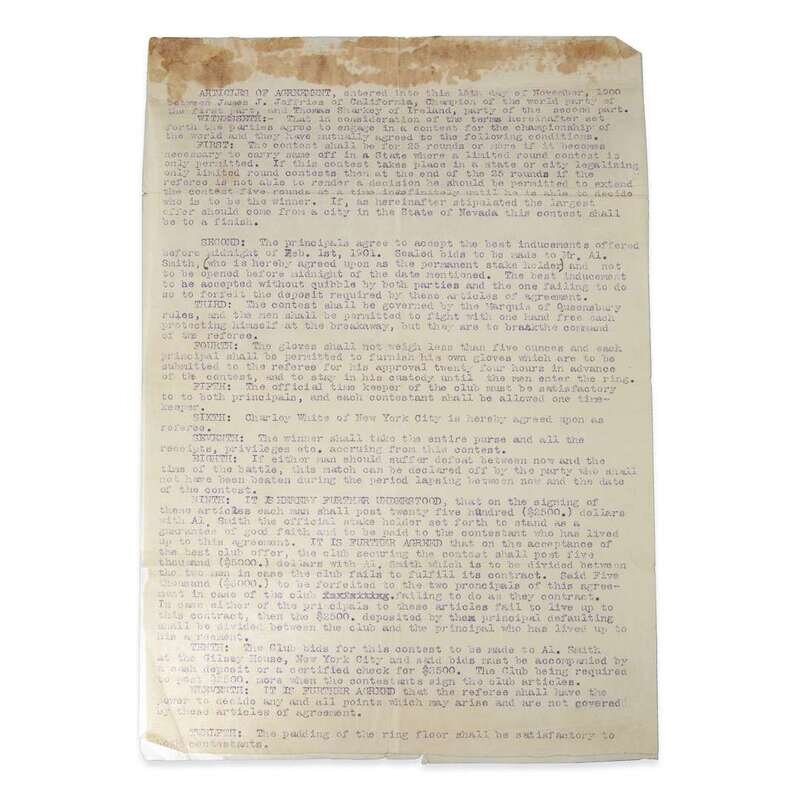 ARTICLES OF AGREEMENT, entered into this 15th day of November, 1900
between James J. Jeffries of California, Champion of the world party of
the first part, and Thomas Sharkey of Ireland, party of the second part.
WITNESSETH:- That in consideration of the terms hereinafter set
forth the parties agree to engage in a contest for the championship of
the world and they have mutually agreed to the following conditions.
FIRST: The contest shall be for 25 rounds or more if it becomes
necessary to carry same off in a State where a limited round contest is
only permitted. If this contest takes place in a state or city legalizing
only limited round contests then at the end of the 25 rounds if the
referee is not able to render a decision he should be permitted to extend
the contest five rounds at a time indefinitely until he is able to decide
who is to be the winner. If, as hereinafter stipulated the largest
offer should come from a city in the State of Nevada this contest shall
be to a finish.
SECOND: The principals agree to accept the best inducements offered
before midnight of Feb. 1st, 1901. Sealed bids to be made to Mr. Al.
Smith, (who is hereby agreed upon as the permanent stake holder) and not
to be opened before midnight of the date mentioned. The best inducement
to be accepted without quibble by both parties and the one failing to do
so to forfeit the deposit required by these articles of agreement.
THIRD: The contest shall be governed by the Marquis of Queensbury
rules, and the men shall be permitted to fight with one hand free each
protecting himself at the breakaway, but they are to breakthe command
of the referee.
FOURTH: The gloves shall not weigh less than five ounces and each
principal shall be permitted to furnish his own gloves which are to be
submitted to the referee for his approval twenty four hours in advance
of the contest, and to stay in his custody until the men enter the ring.
FIFTH: The official time keeper of the club must be satisfactory
to to both principals, and each contestant shall be allowed one time-
keeper.
SIXTH: Charley White of New York City is hereby agreed upon as
referee.
SEVENTH: The winner shall take the entire purse and all the
receipts, privileges etc. accruing from this contest.
EIGHTH: If either man should suffer defeat between now and the
time of the battle, this match can be declared off by the party who shall
not have been beaten during the period lapsing between now and the date
of the contest.
NINTH: IT IS HEREBY FURTHER UNDERSTOOD, that on the signing of
these articles each man shall post twenty five hundred ($2500.) dollars
with Al. Smith the official stake holder set forth to stand as a
guarantee of good faith and to be paid to the contestant who has lived
up to this agreement. IT IS FURTHER AGREED that on the acceptance of
the best club offer, the club securing the contest shall post five
thousand ($5000.) dollars with Al. Smith which is to be divided between
the two men in case the club fails to fulfill its contract. Said Five
thousand ($5000.) to be forfeited to the two proncipals of this agree-
ment in case of the club failing to do as they contract.
In case either of the principals to these articles fail to live up to
this contract, then the $2500. deposited by them principal defaulting
shall be divided between the club and the principal who has lived up to
his agreement.
TENTH: The Club bids for this contest to be made to Al. Smith
at the Gilsey House, New York City and said bids must be accompanied by
a cash deposit or a certified check for $2500. The Club being required
to post $2500. more when the contestants sign the club articles.
ELEVENTH: IT IS FURTHER AGREED that the referee shall have the
power to decide any and all points which may arise and are not covered
by these articles of agreement.
TWELFTH: The padding of the ring floor shall be satisfactory to
contestants.